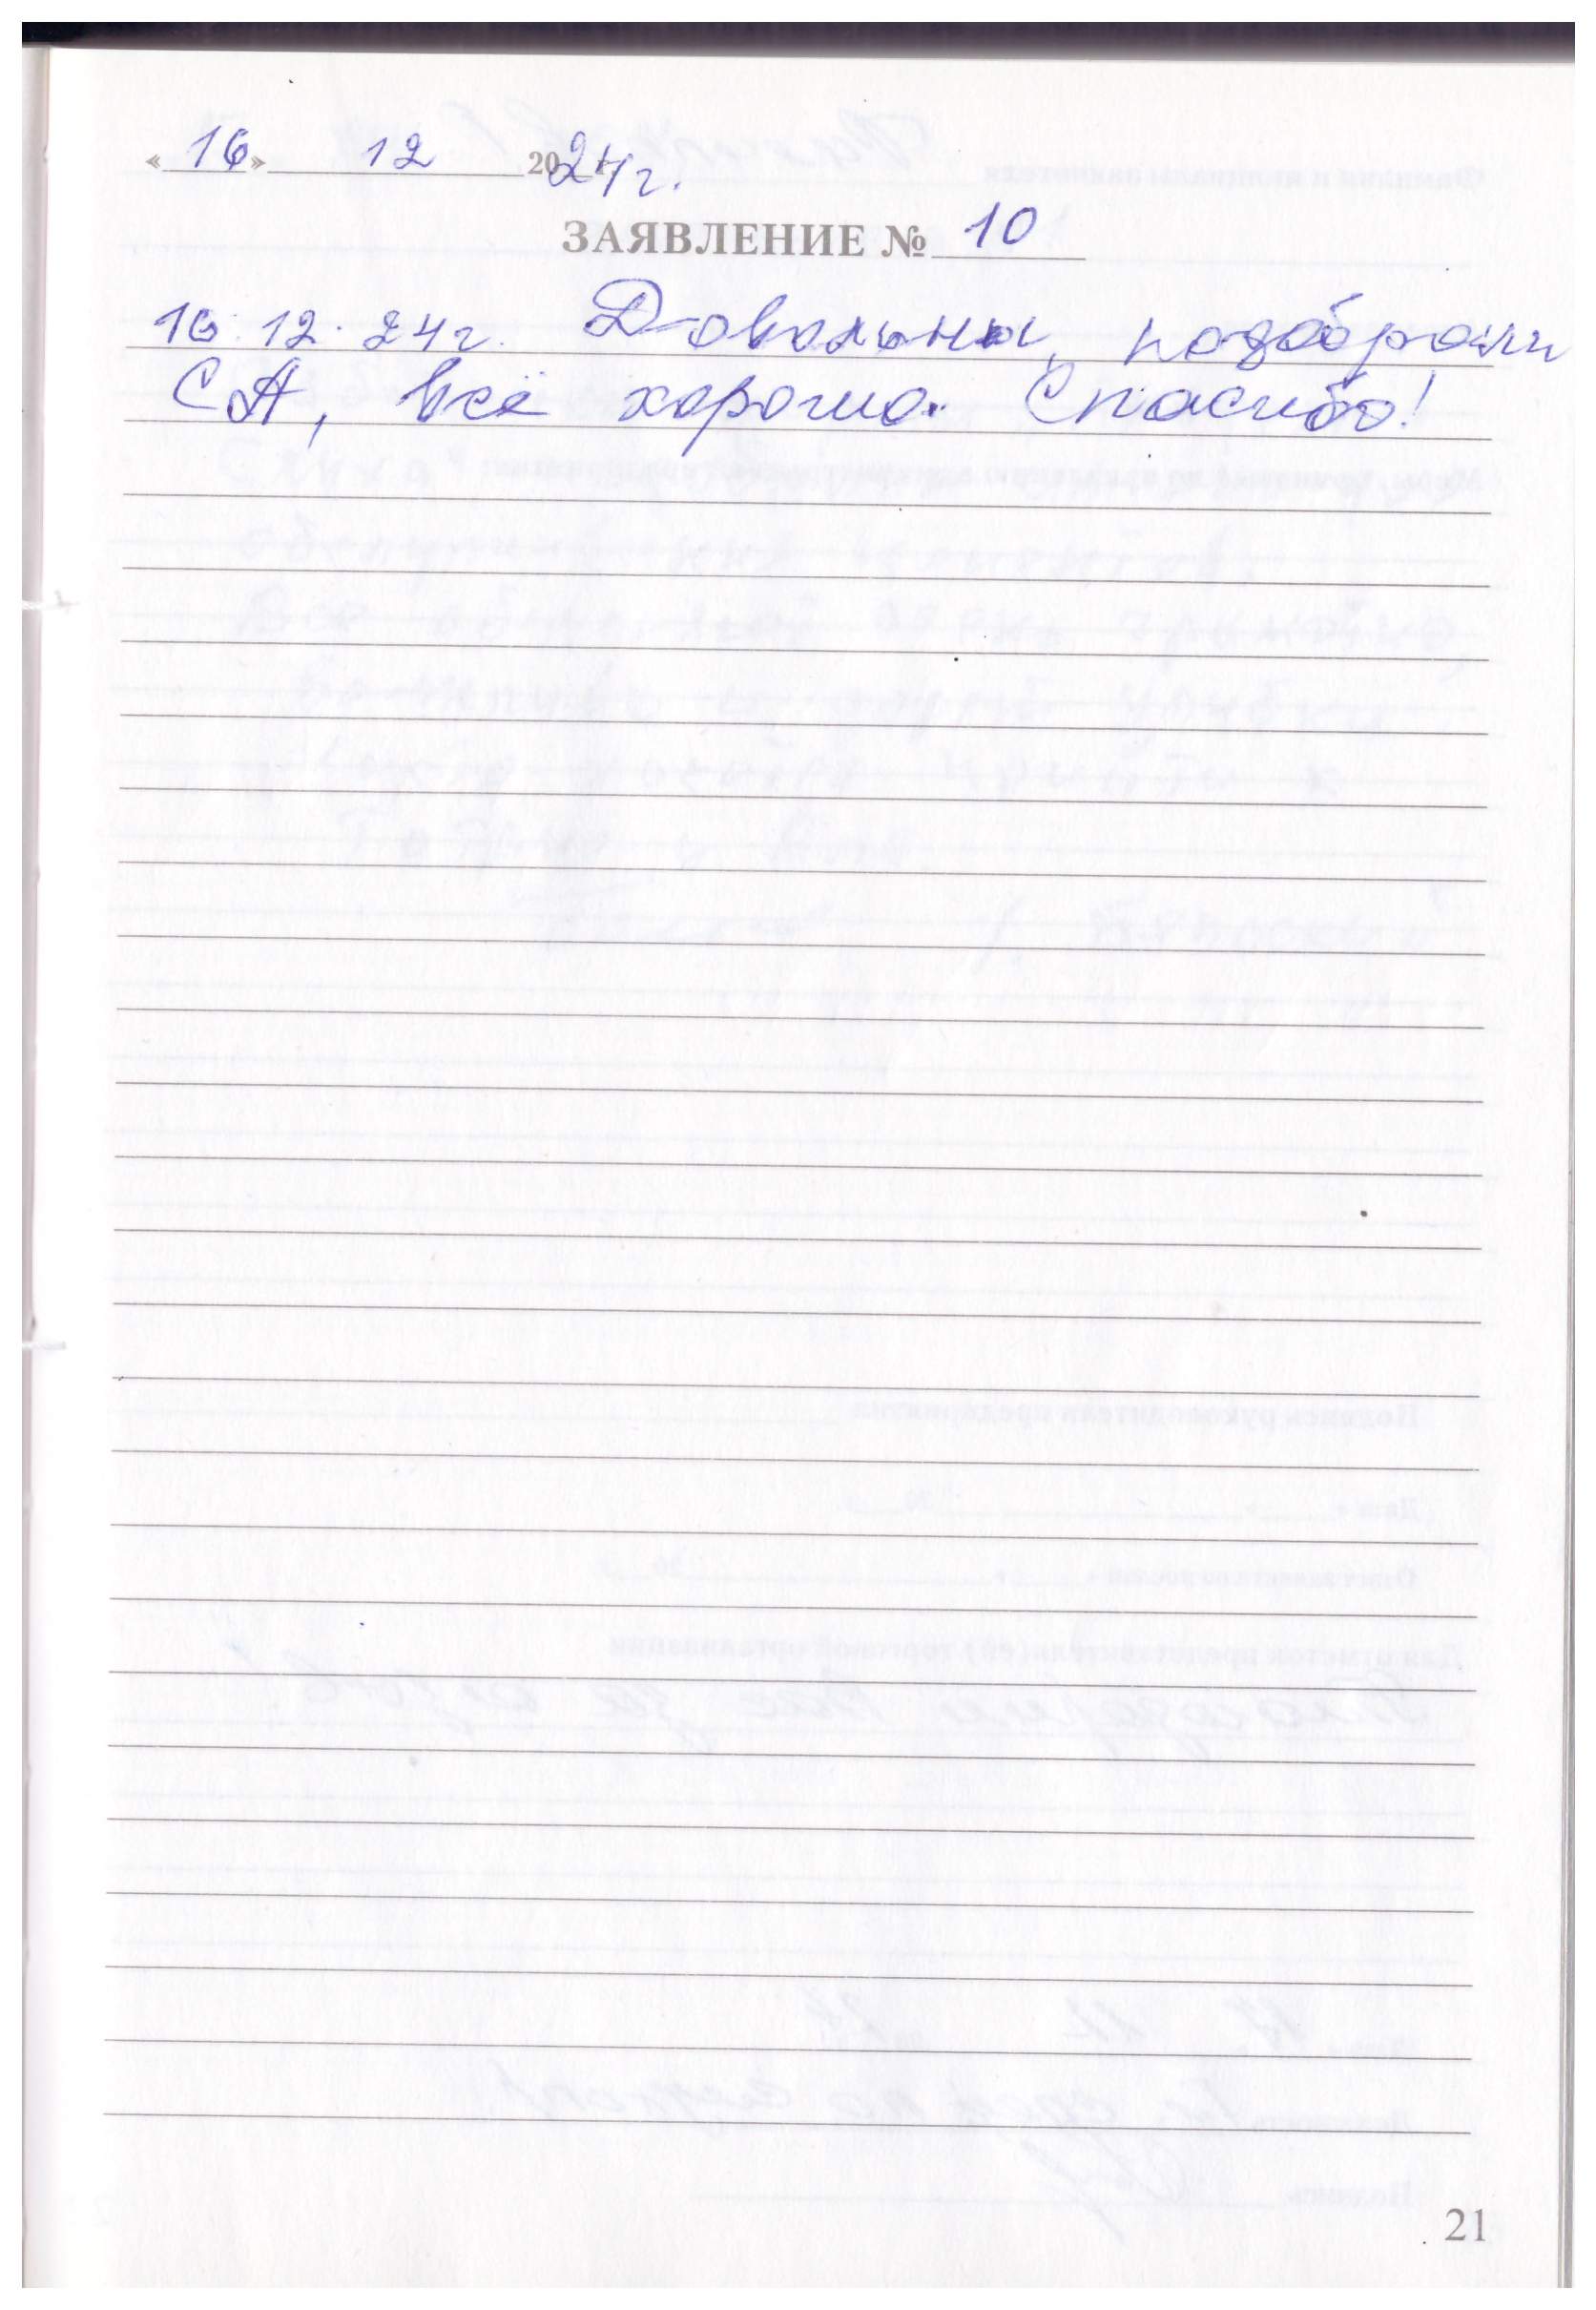 «16» 12 2024г.
ЗАЯВЛЕНИЕ № 10
16.12.24г. Довольны, подобрали
СА, всё хорошо. Спасибо!
21